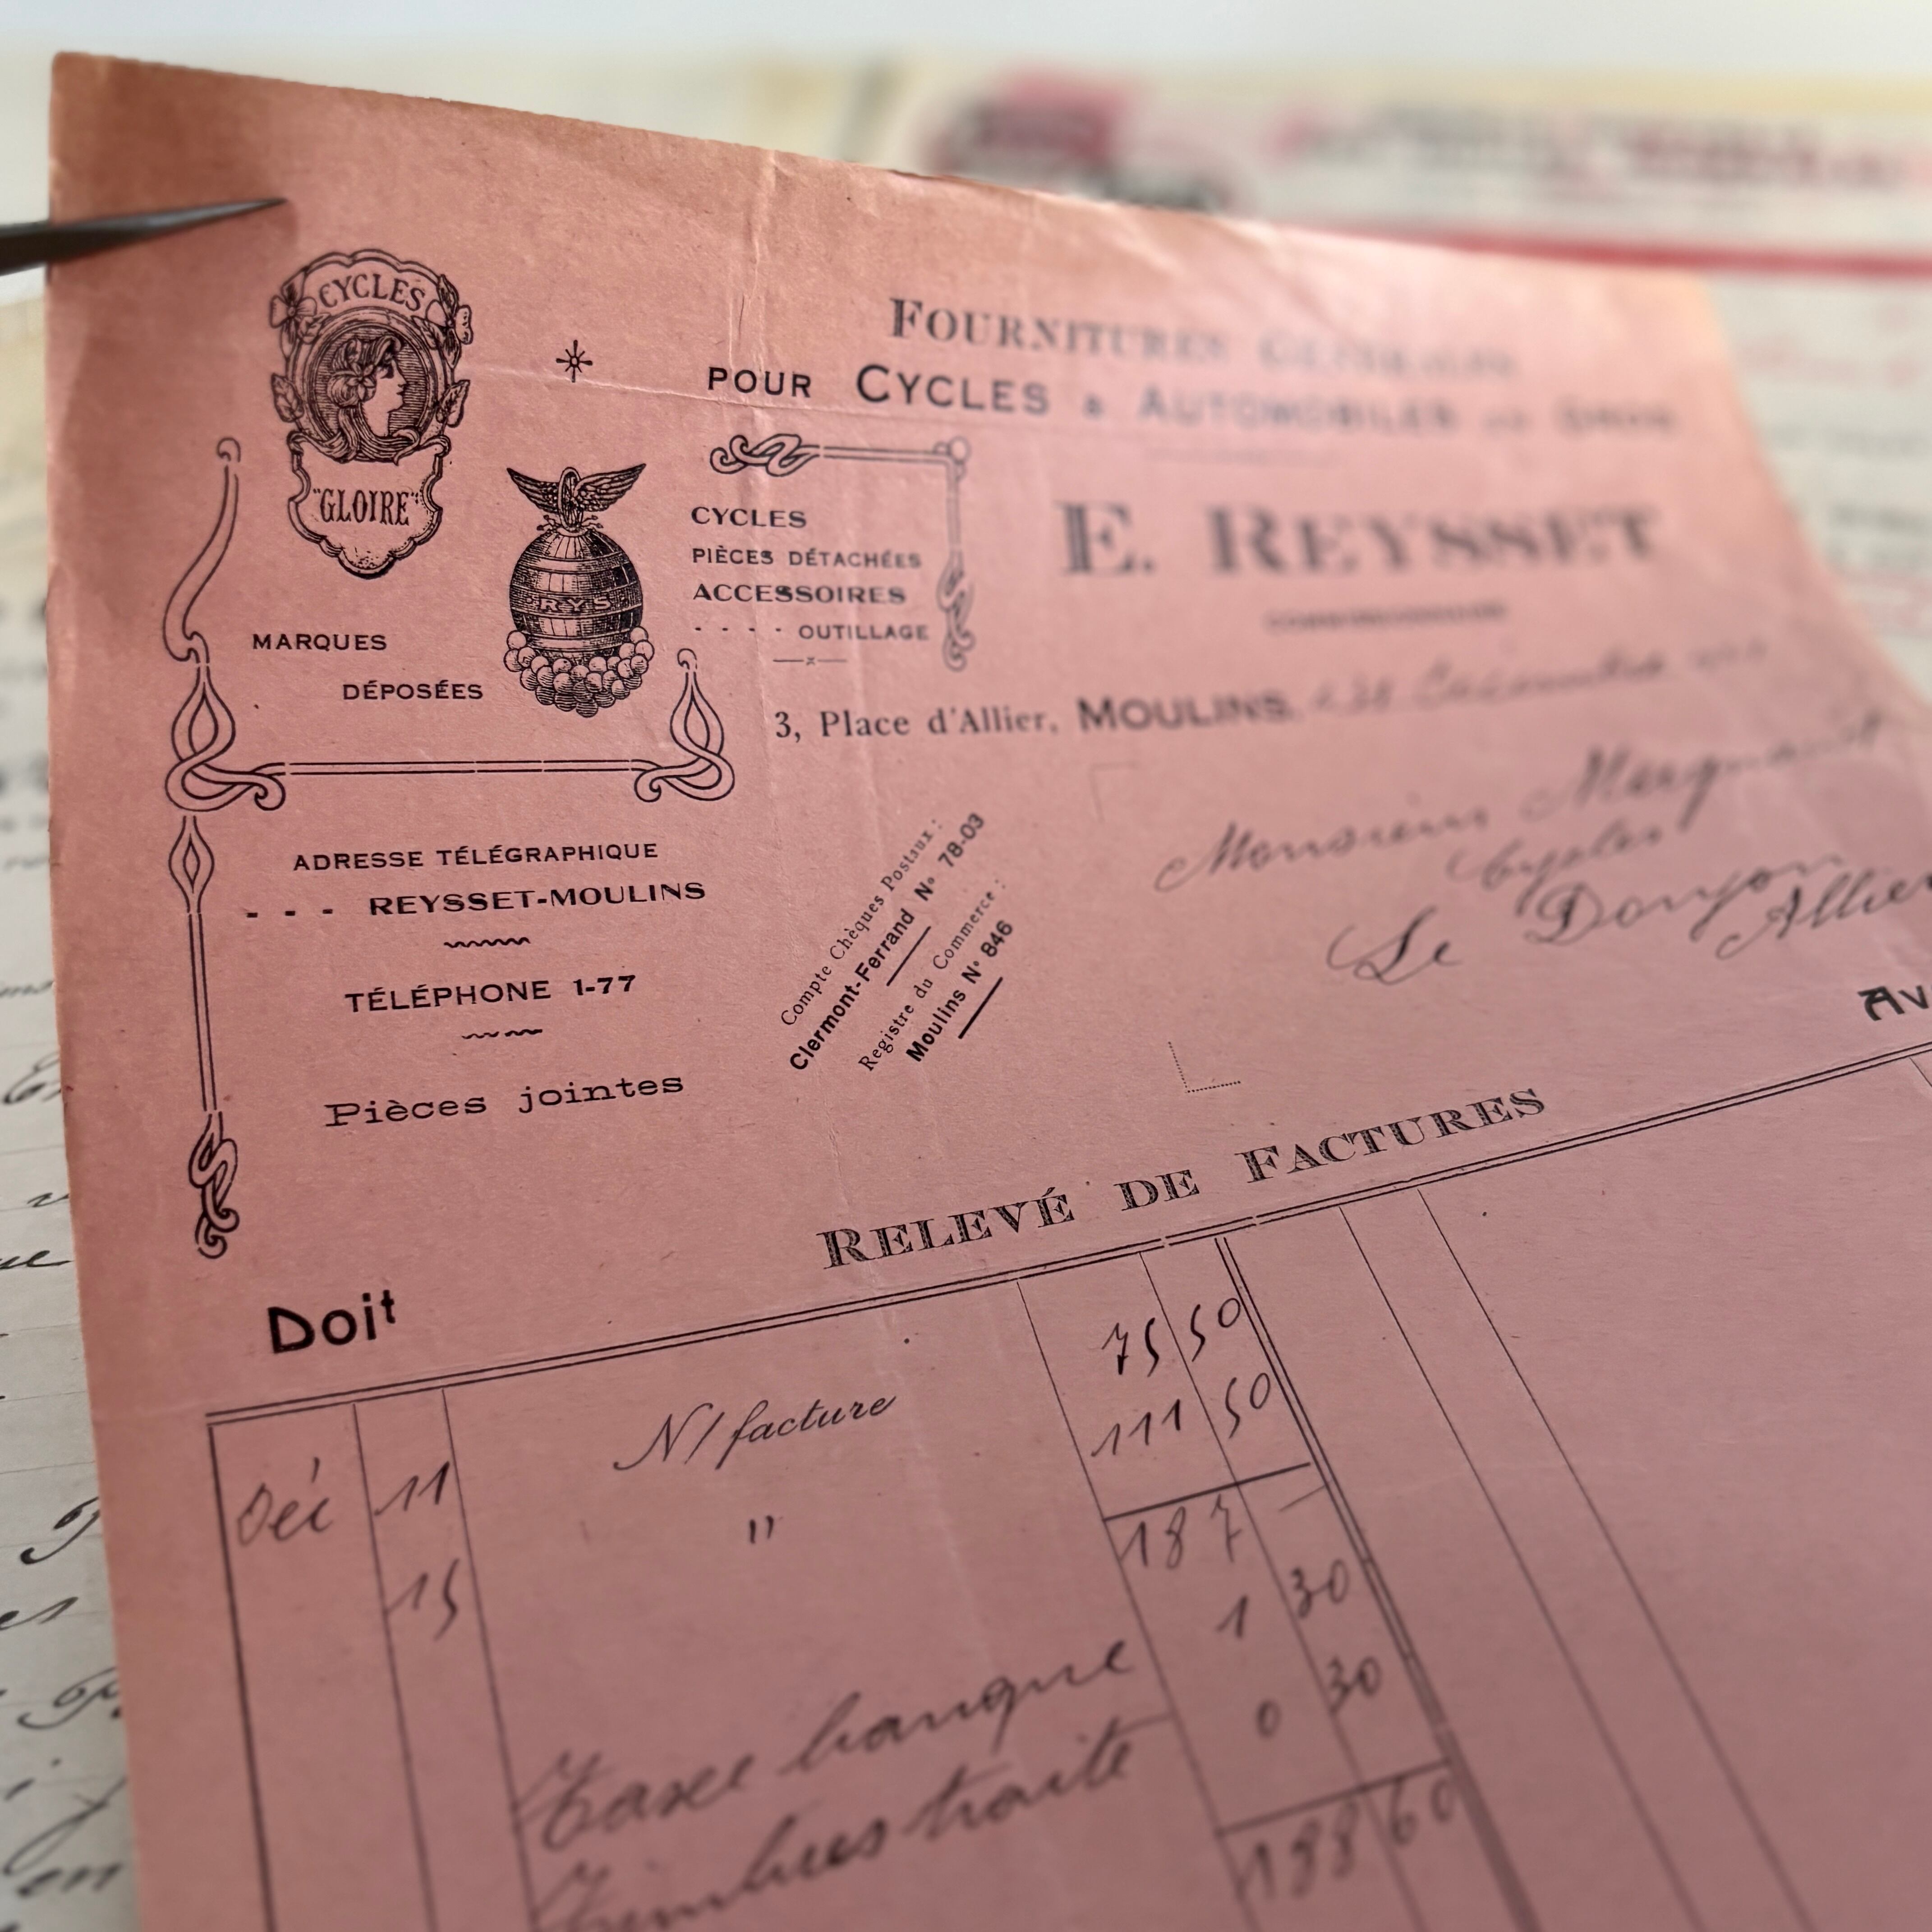 CYCLES
"GLOIRE"
RYS
MARQUES
DÉPOSÉES
FOURNITURES GÉNÉRALES
POUR CYCLES & AUTOMOBILES EN GROS
CYCLES
PIÈCES DÉTACHÉES
ACCESSOIRES
- - - - OUTILLAGE
E. REYSSET
3, Place d'Allier, MOULINS,
Monsieur
Cycles
Le Donjon
Allier
ADRESSE TÉLÉGRAPHIQUE
- - - REYSSET-MOULINS
TÉLÉPHONE 1-77
Pièces jointes
Compte Chèques Postaux :
Clermont-Ferrand N° 78-03
Registre du Commerce :
Moulins N° 846
RELEVÉ DE FACTURES
Doit
Av
Déc 11 N/ facture 75 50
15 " 111 50
187 —
Taxe banque 1 30
Timbres traite 0 30
188 60